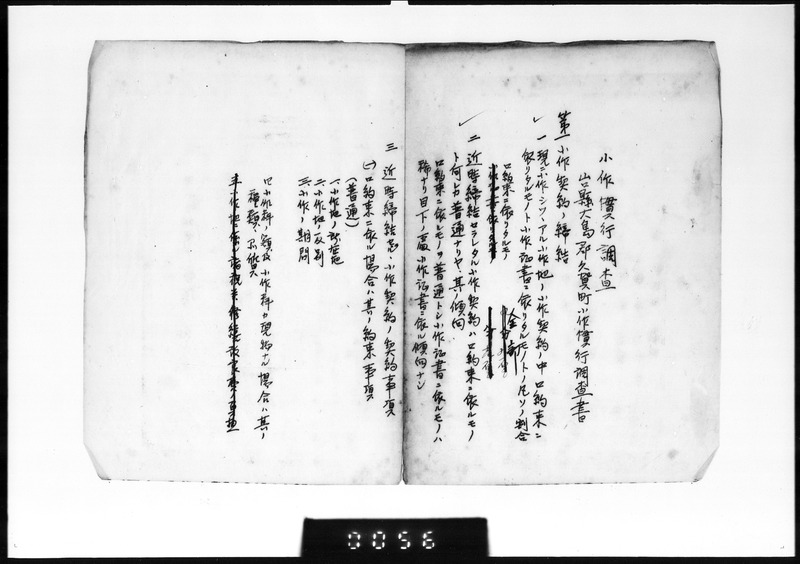 小作慣行調査
山口縣大島郡久賀町小作慣行調査書
第一 小作契約ノ締結
一 現ニ小作シツヽアル小作地ノ小作契約ノ中口約束ニ
依リタルモノト小作証書ニ依リタルモノトノ凡ソノ割合
口約束ニ依リタルモノ 全部
二 近時締結セラレタル小作契約ハ口約束ニ依ルモノ
ト何レカ普通ナリヤ、其ノ傾向
口約束ニ依ルモノヲ普通トシ小作証書ニ依ルモノハ
稀ナリ目下ノ處小作証書ニ依ル傾向ナシ
三 近時締結ノ小作契約ノ契約事項
(一)口約束ニ依ル場合ハ其ノ約束事項
(普通)
一、小作地ノ所在地
二、小作地ノ反別
三、小作ノ期間
四、小作料ノ額及小作料カ現物ナル場合ハ其ノ
種類、品質
0056